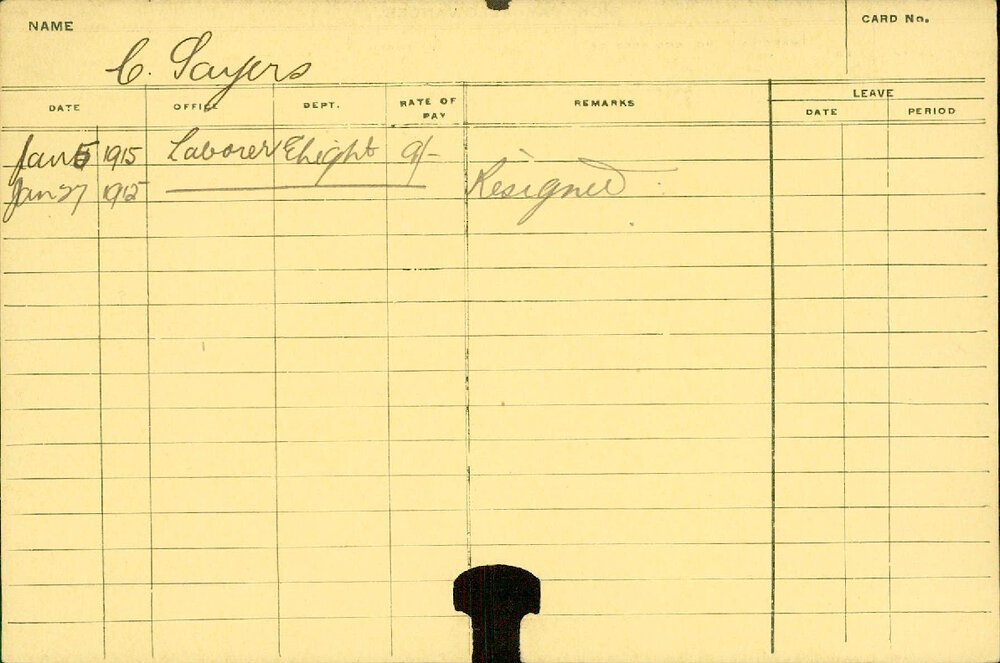 NAME
CARD No.
C. Sayers
DATE OFFICE DEPT. RATE OF PAY REMARKS LEAVE
DATE PERIOD
Jan 5 1915 Laborer Elight 9/-
Jan 27 1915 Resigned